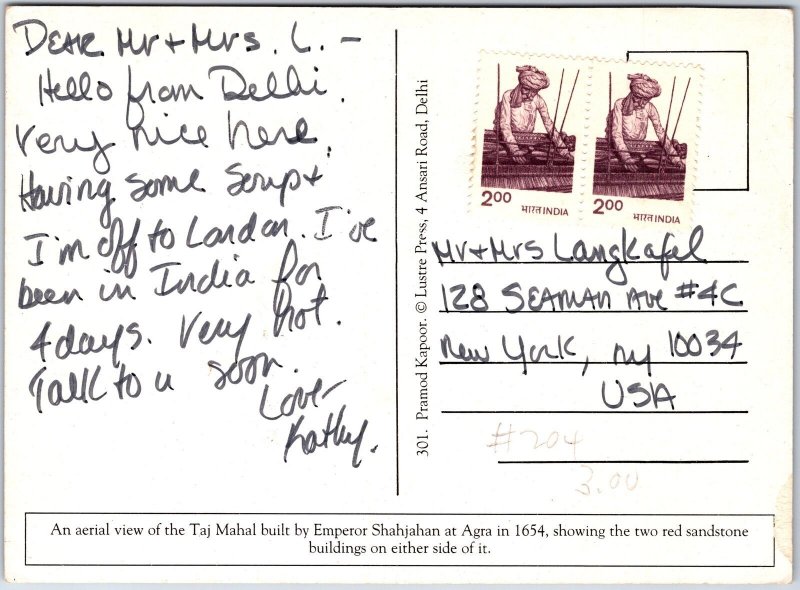 DEAR Mr + Mrs. L. -
Hello from Delhi.
Very nice here.
Having some soup +
I'm off to London. I've
been in India for
4 days. Very hot.
Talk to u soon.
Love -
Kathy.
301. Pramod Kapoor. © Lustre Press, 4 Ansari Road, Delhi
2.00 भारत INDIA
2.00 भारत INDIA
Mr + Mrs Langkafel
128 SEAMAN AVE #4C
New York, NY 10034
USA
#204
3.00
An aerial view of the Taj Mahal built by Emperor Shahjahan at Agra in 1654, showing the two red sandstone
buildings on either side of it.